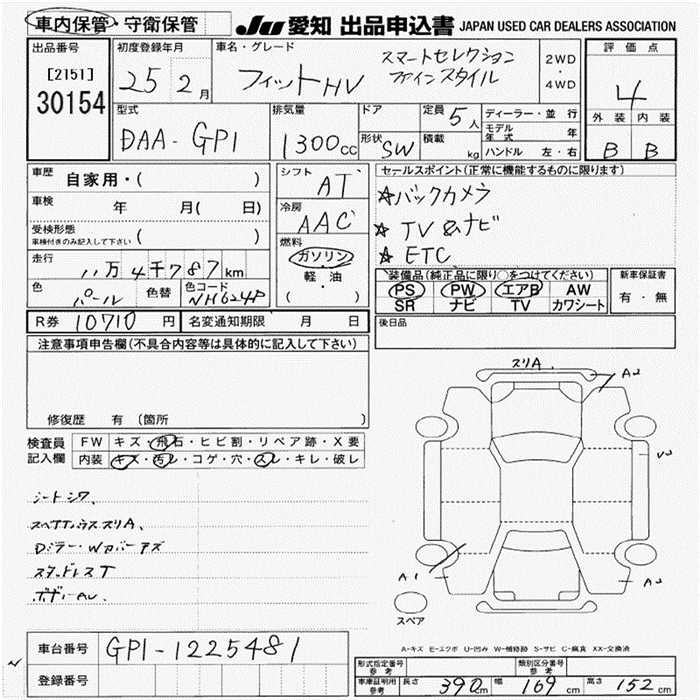 車内保管・守衛保管
JU 愛知 出品申込書 JAPAN USED CAR DEALERS ASSOCIATION
出品番号
[2151]
30154
初度登録年月
25 2月
車名・グレード
フィットHV
スマートセレクション
ファインスタイル
2WD
・
4WD
評価点
4
外装 内装
B B
型式
DAA-GP1
排気量
1300cc
ドア
形状 SW
定員 5人
積載 kg
ディーラー・並行
モデル年式 年
ハンドル 左・右
車歴 自家用・( )
車検 年 月(日)
受検形態
車検付きのみ記入して下さい ( )
走行 11万4千787km
色 パール 色替 色コード NH624P
シフト AT
冷房 AAC
燃料
ガソリン
・
軽・油
( )
セールスポイント(正常に機能するものに限ります)
☆バックカメラ
☆TV&ナビ
☆ETC
装備品(純正品に限り○をつけてください)
PS PW エアB AW
SR ナビ TV カワシート
新車保証書
有・無
R券 10710円 名変通知期限 月 日
後日品
注意事項申告欄(不具合内容等は具体的に記入して下さい)
修復歴 有 (箇所 )
検査員記入欄
FW キズ・飛石・ヒビ割・リペア跡・X要
内装 キズ・汚レ・コゲ・穴・スレ・キレ・破レ
シートシワ
スリA
A2
A1
スペア
スタッドレスT
A-キズ E-エクボ U-凹み W-補修跡 S-サビ C-腐食 XX-交換済
車台番号 GP1-1225481
登録番号
型式指定番号 参考
類別区分番号 参考
車庫証明用 参考 長さ 390cm 幅 169cm 高さ 152cm